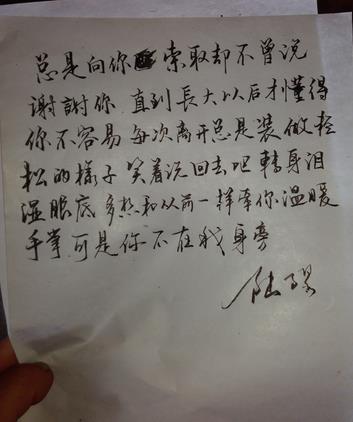 总是向你索取却不曾说
谢謝你 直到長大以后才懂得
你不容易 每次离开总是装做轻
松的樣子 笑着说回去吧 轉身泪
湿眼底 多想和从前一样牵你温暖
手掌 可是你不在我身旁